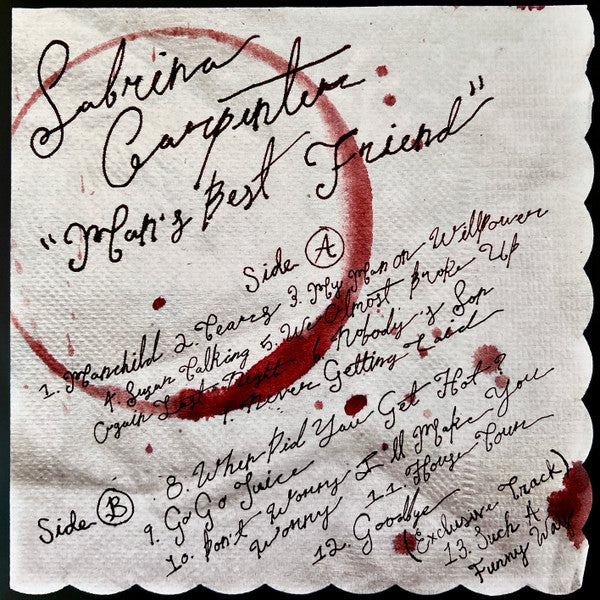 Sabrina
Carpenter
"Man's Best Friend"
Side A
1. Manchild 2. Tears 3. My Man on Willpower
4. Sugar Talking 5. We Almost Broke Up
Again Last Night 6. Nobody's Son
7. Never Getting Laid
Side B
8. When Did You Get Hot?
9. Go Go Juice
10. Don't Worry I'll Make You
Worry 11. House Tour
12. Goodbye
(Exclusive Track)
13. Such A
Funny Way